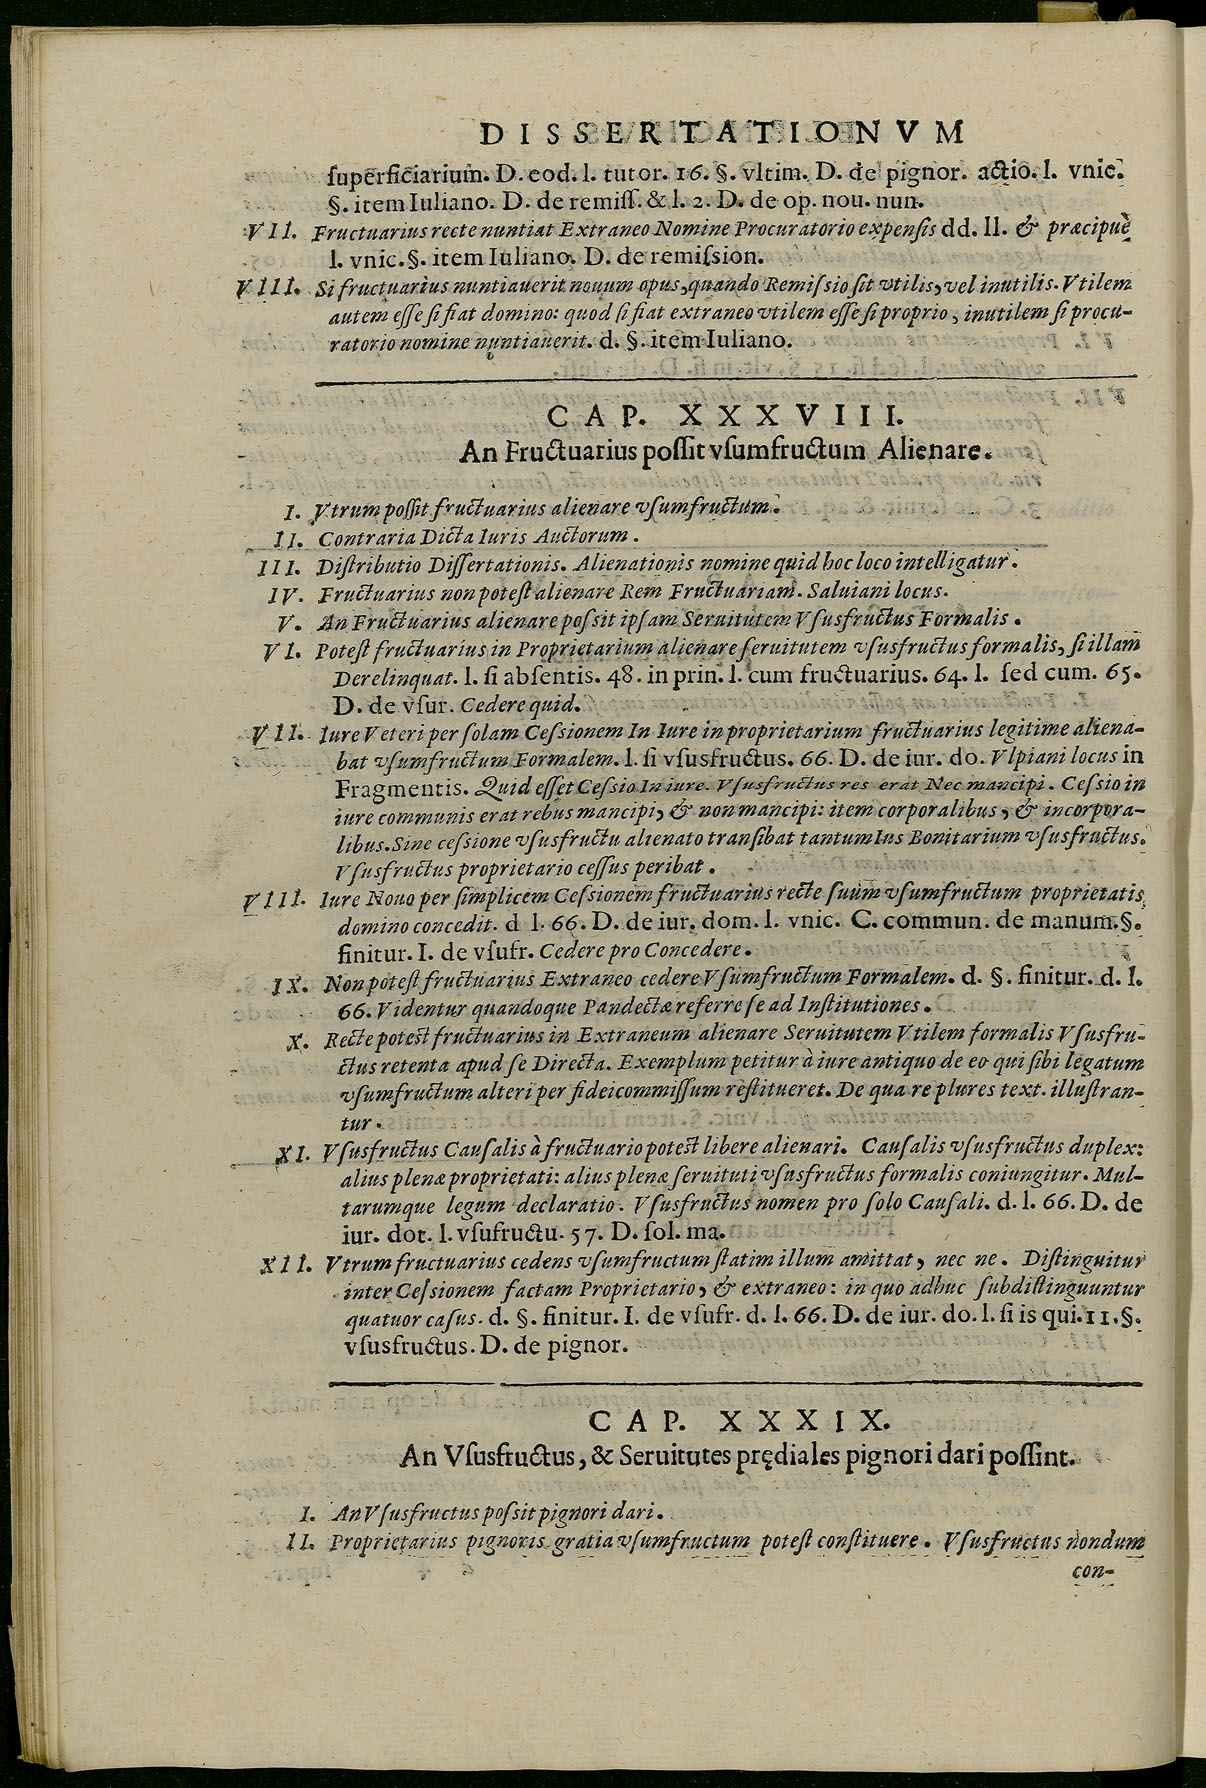 DISSERTATIONVM
ſuperficiarium. D. eod. l. tutor. 16. §. vltim. D. de pignor. actio. l. vnic.
§. item Iuliano. D. de remiſſ. & l. 2. D. de op. nou. nun.
VII. Fructuarius recte nuntiat Extraneo Nomine Procuratorio expenſis dd. ll. & præcipuè
l. vnic. §. item Iuliano. D. de remiſsion.
VIII. Si fructuarius nuntiauerit nouum opus, quando Remiſsio ſit vtilis, vel inutilis. Vtilem
autem eſſe ſi fiat domino: quod ſi fiat extraneo vtilem eſſe ſi proprio, inutilem ſi procu-
ratorio nomine nuntiauerit. d. §. item Iuliano.
CAP. XXXVIII.
An Fructuarius poſſit vſumfructum Alienare.
I. Vtrum poſſit fructuarius alienare vſumfructum.
II. Contraria Dicta Iuris Auctorum.
III. Diſtributio Diſſertationis. Alienationis nomine quid hoc loco intelligatur.
IV. Fructuarius non poteſt alienare Rem Fructuariam. Saluiani locus.
V. An Fructuarius alienare poſsit ipſam Seruitutem Vſusfructus Formalis.
VI. Poteſt fructuarius in Proprietarium alienare ſeruitutem vſusfructus formalis, ſi illam
Derelinquat. l. ſi abſentis. 48. in prin. l. cum fructuarius. 64. l. ſed cum. 65.
D. de vſur. Cedere quid.
VII. Iure Veteri per ſolam Ceſsionem In Iure in proprietarium fructuarius legitime aliena-
bat vſumfructum Formalem. l. ſi vſusfructus. 66. D. de iur. do. Vlpiani locus in
Fragmentis. Quid eſſet Ceſsio In iure. Vſusfructus res erat Nec mancipi. Ceſsio in
iure communis erat rebus mancipi, & non mancipi: item corporalibus, & incorpora-
libus. Sine ceſsione vſusfructu alienato tranſibat tantum Ius Bonitarium vſusfructus.
Vſusfructus proprietario ceſſus peribat.
VIII. Iure Nouo per ſimplicem Ceſsionem fructuarius recte ſuum vſumfructum proprietatis
domino concedit. d l. 66. D. de iur. dom. l. vnic. C. commun. de manum. §.
finitur. I. de vſufr. Cedere pro Concedere.
IX. Non poteſt fructuarius Extraneo cedere Vſumfructum Formalem. d. §. finitur. d. l.
66. Videntur quandoque Pandectæ referre ſe ad Inſtitutiones.
X. Recte poteſt fructuarius in Extraneum alienare Seruitutem Vtilem formalis Vſusfru-
ctus retenta apud ſe Directa. Exemplum petitur à iure antiquo de eo qui ſibi legatum
vſumfructum alteri per fideicommiſſum reſtitueret. De qua re plures text. illuſtran-
tur.
XI. Vſusfructus Cauſalis à fructuario poteſt libere alienari. Cauſalis vſusfructus duplex:
alius plenæ proprietati: alius plenæ ſeruituti vſusfructus formalis coniungitur. Mul-
tarumque legum declaratio. Vſusfructus nomen pro ſolo Cauſali. d. l. 66. D. de
iur. dot. l. vſufructu. 57. D. ſol. ma.
XII. Vtrum fructuarius cedens vſumfructum ſtatim illum amittat, nec ne. Diſtinguitur
inter Ceſsionem factam Proprietario, & extraneo: in quo adhuc ſubdiſtinguuntur
quatuor caſus. d. §. finitur. I. de vſufr. d. l. 66. D. de iur. do. l. ſi is qui. 11. §.
vſusfructus. D. de pignor.
CAP. XXXIX.
An Vſusfructus, & Seruitutes prędiales pignori dari poſſint.
I. An Vſusfructus poſsit pignori dari.
II. Proprietarius pignoris gratia vſumfructum poteſt conſtituere. Vſusfructus nondum
con-